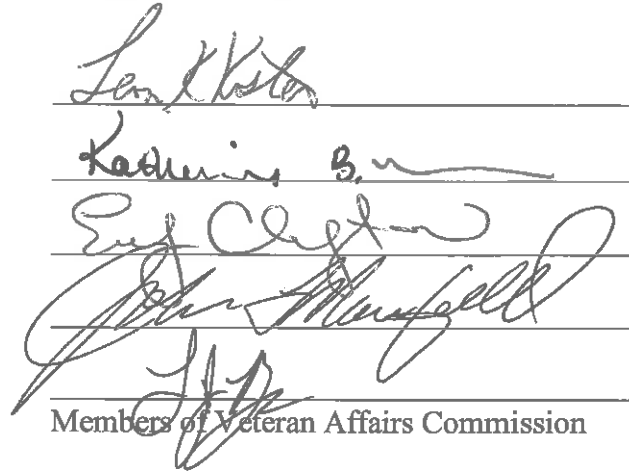 Leon K Koster
Katherine B.
Clayton
John Mansfield
Members of Veteran Affairs Commission